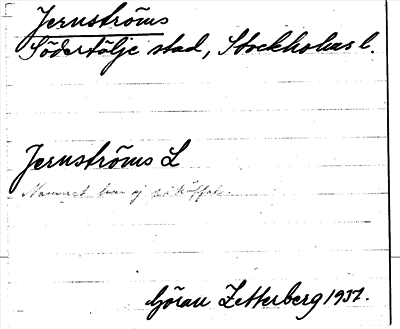 Jernströms
Södertälje stad, Stockholms l.
Jernströms L
Namnet har ej
Göran Zetterberg 1937.